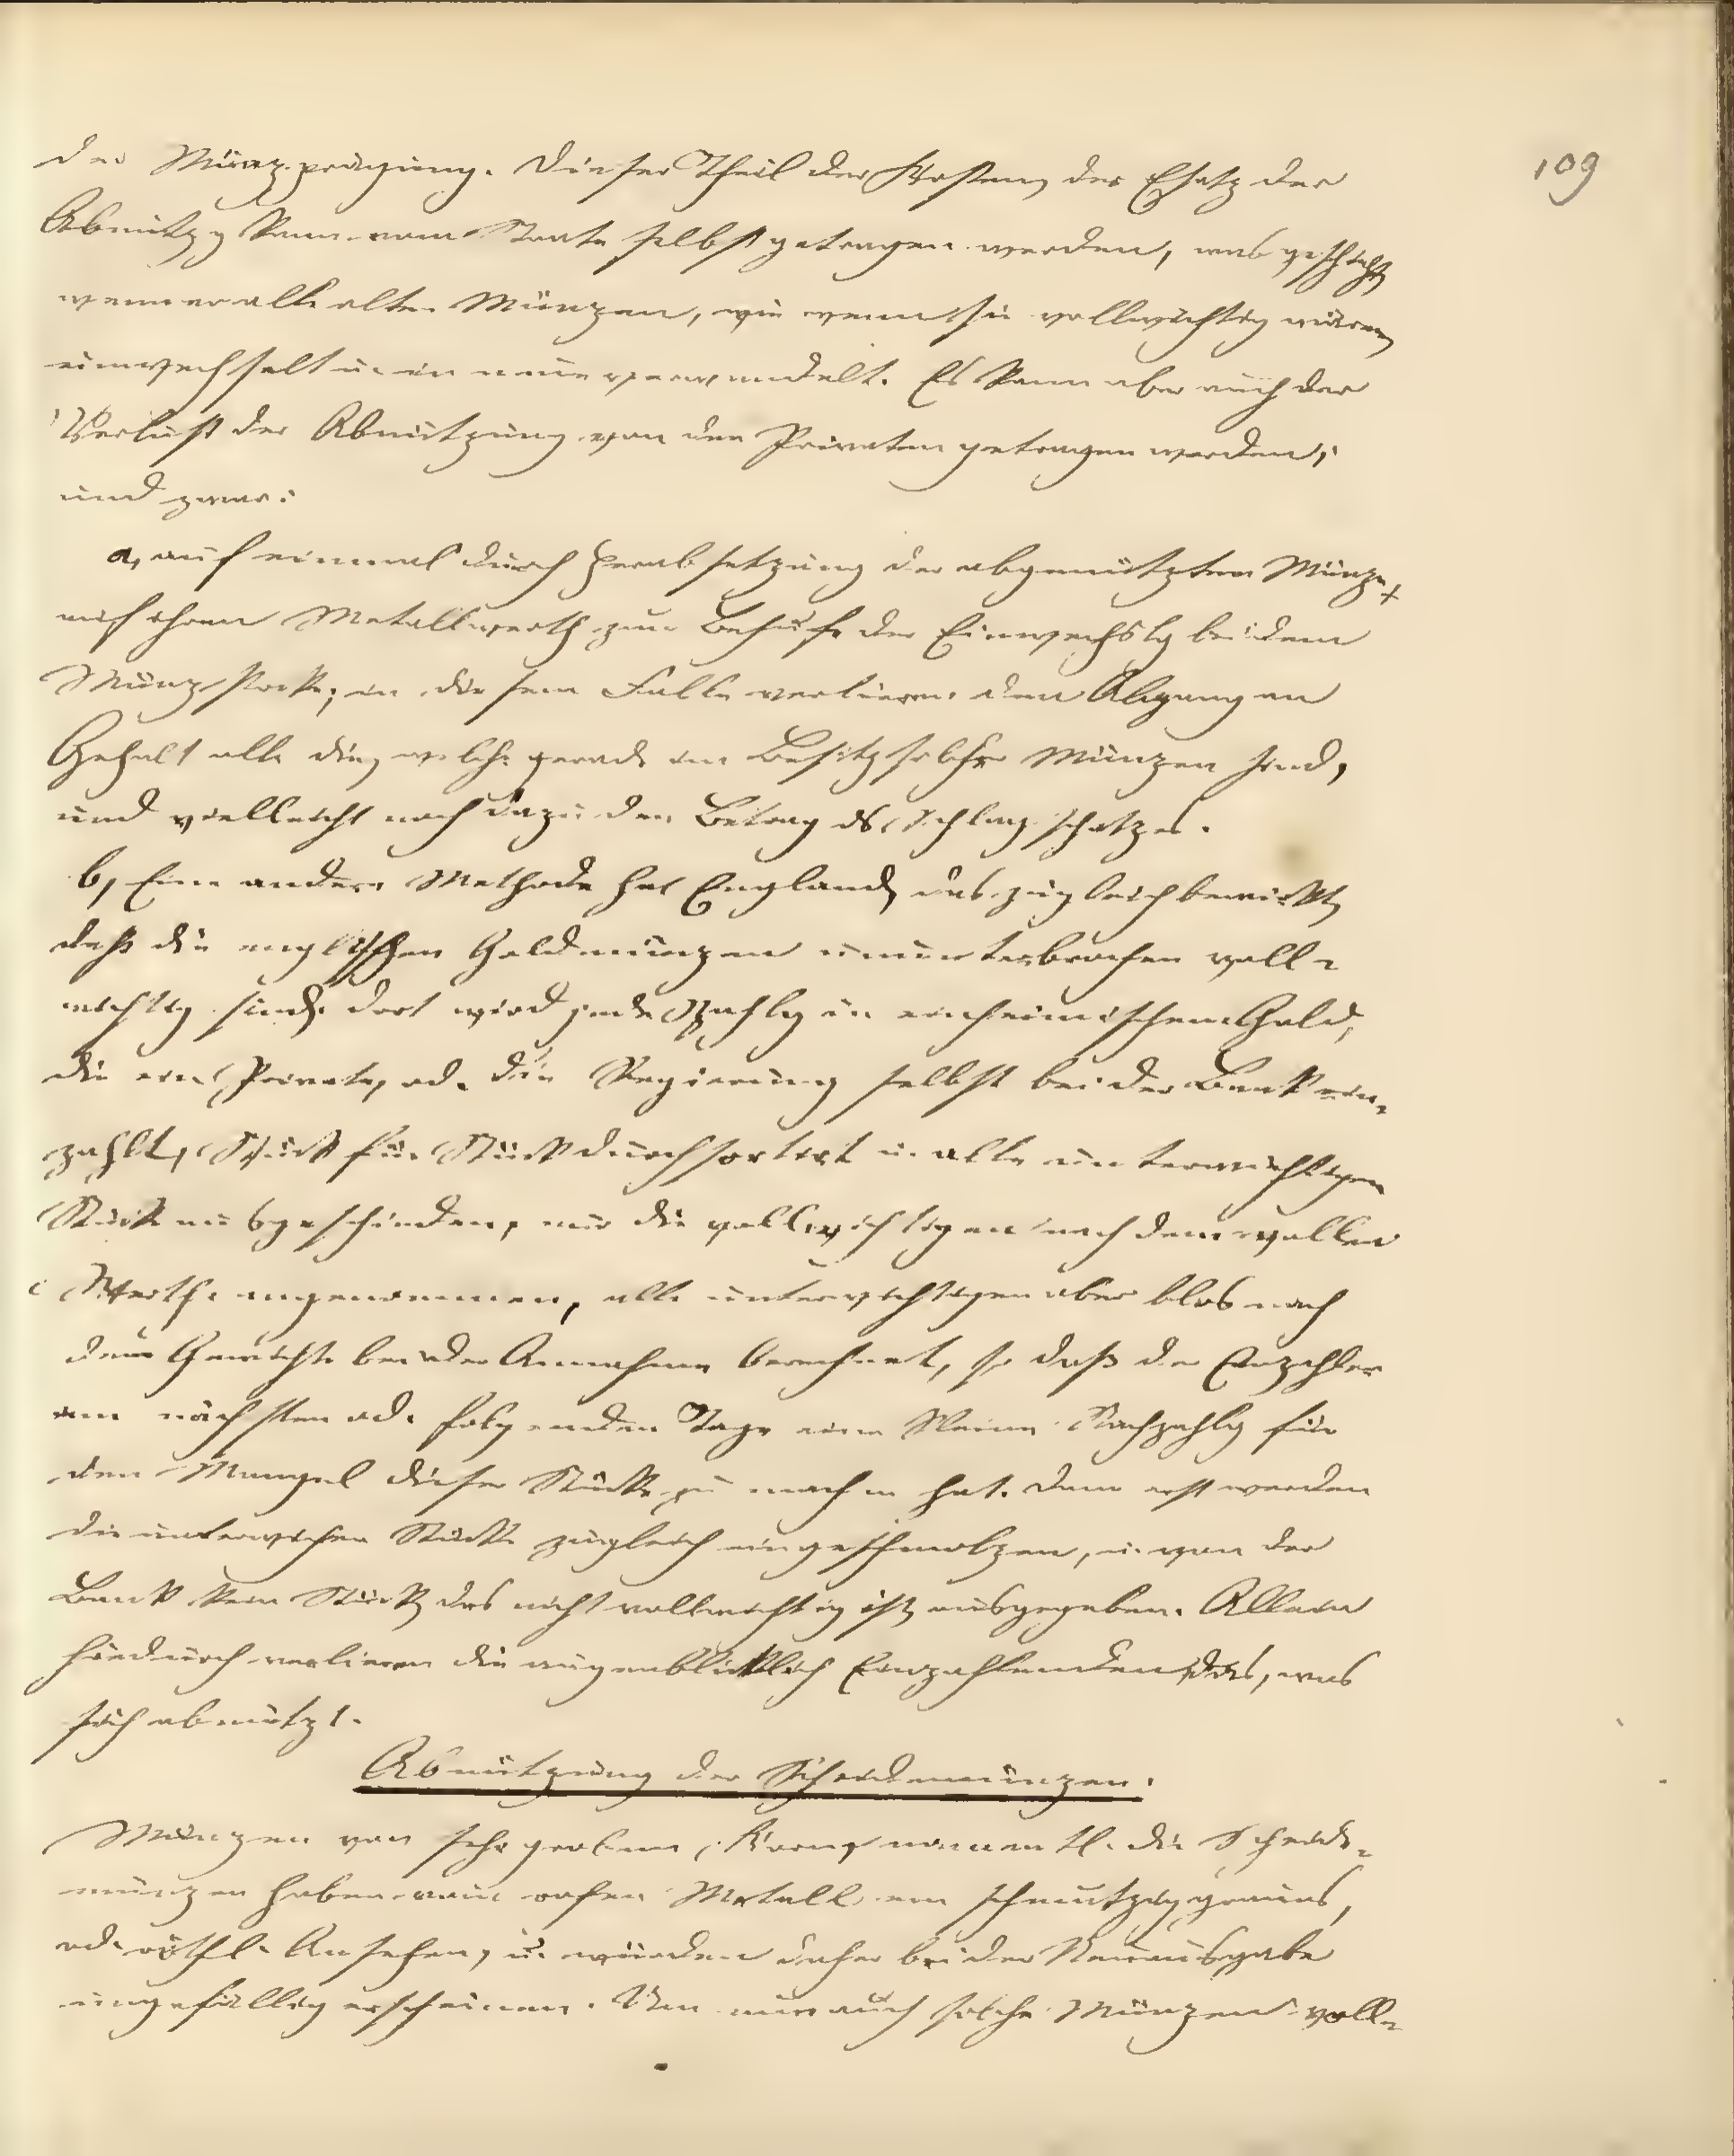 109
der Münzprägung. Dieser Theil der Kosten, der Ersatz der
Abnützg kann vom Staate selbst getragen werden, was geschieht,
wenn er alle alten Münzen, wie wenn sie vollwichtig wären,
einwechselt u. in neue verwandelt. Es kann aber auch der
Verlust der Abnützung von den Privaten getragen werden,
und zwar:
a, auf einmal durch Herabsetzung der abgenützten Münzen
auf ihren Metallwerth zum Behufe der Einwechslg bei dem
Münz; in diesem Falle verlieren den Abgang an
Gehalt alle die, welche gerade im Besitz solcher Münzen sind,
und vielleicht noch dazu den Betrag des Schlagschatzes.
b, Eine andere Methode hat England, das zugleich bewirkt,
daß die englischen Goldmünzen ununterbrochen voll-
wichtig sind. dort wird jede Zahlg in einheimischem Gold,
die ein Privater, od. die Regierung selbst bei der Bank ein-
zahlt, Stück für Stück durchsortirt u. alle unterwichtigen
Stücke ausgeschieden, nur die vollwichtigen nach dem vollen
Werthe angenommen, alle unterwichtigen aber blos nach
dem Gewichte bei der Annahme berechnet, so daß der Einzahler
am nächsten od. folgenden Tage eine kleine Nachzahlg für
den Mangel dieser Stücke zu machen hat. dann erst werden
die unterwichtigen Stücke zugleich eingeschmolzen, u. von der
Bank kein Stück, das nicht vollwichtig ist, ausgegeben. Allein
hiedurch verlieren die augenblicklich Einzahlenden das, was
sich abnützt.
Abnützung der Scheidemünzen.
Münzen von sehr grobem Korn, namentl. die Scheide-
münzen haben vom rohen Metall ein schmutzig graues,
od. röthl. Ansehen, u. würden daher bei der Neuausgabe
ungefällig erscheinen. Um nun auch solche Münzen voll-